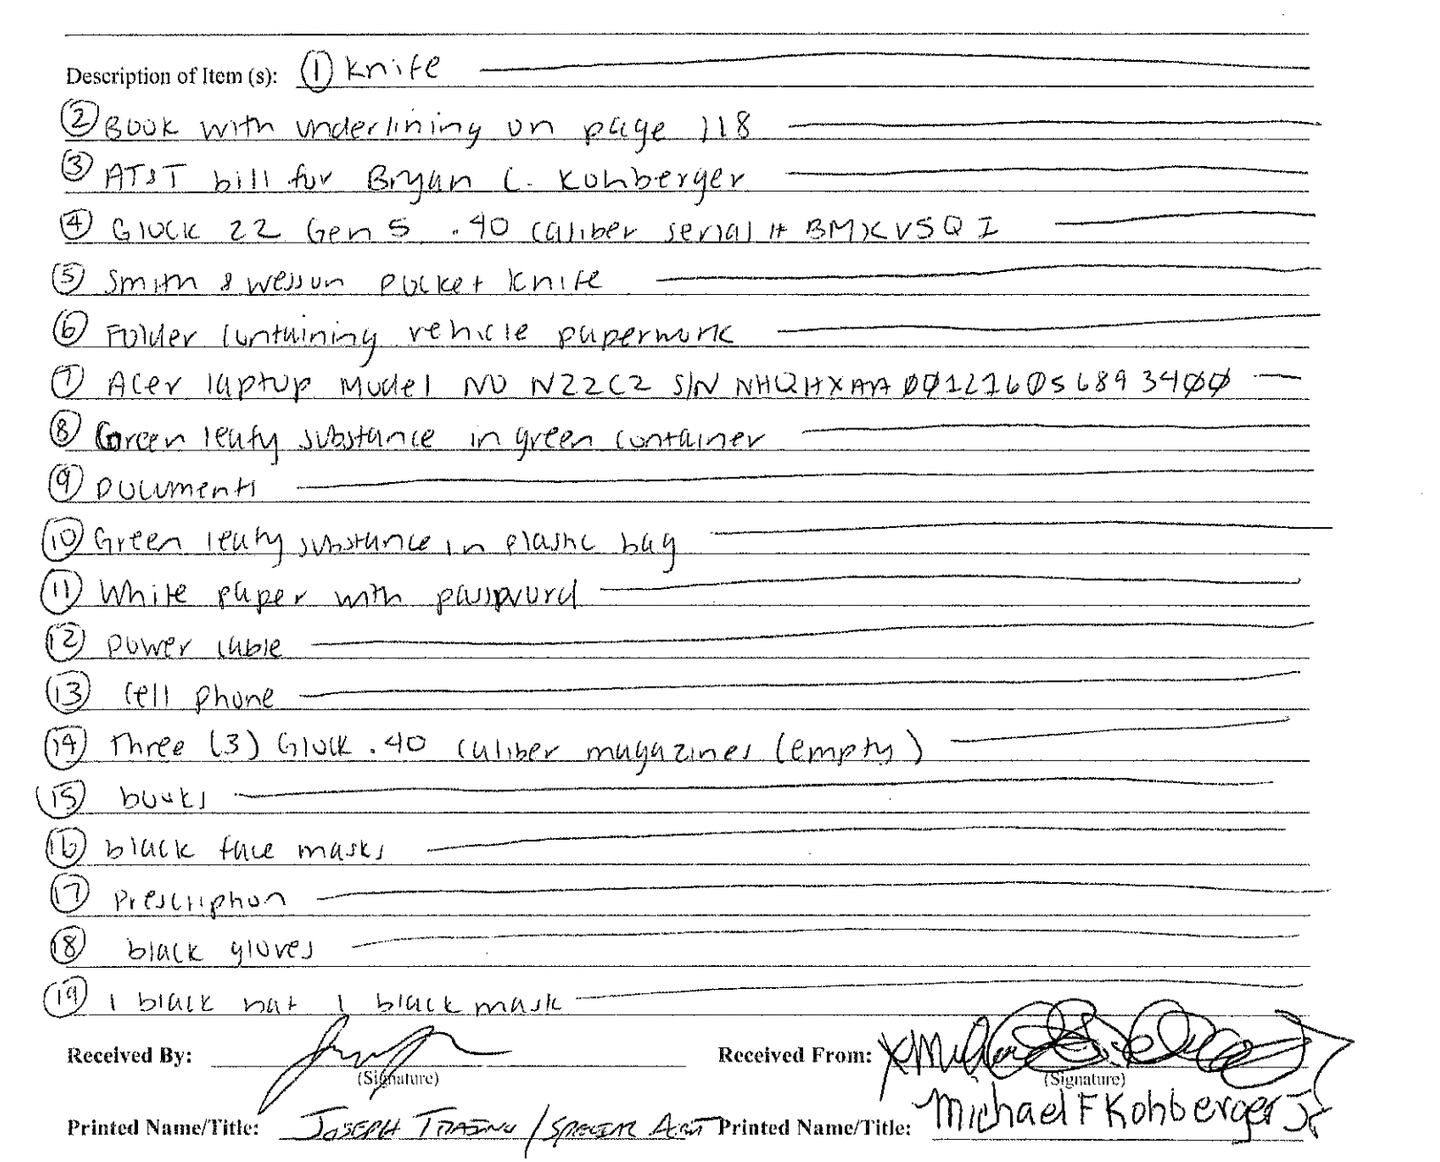 Description of Item (s): ① Knife
② Book with underlining on page 118
③ AT&T bill for Bryan C. Kohberger
④ Glock 22 Gen 5 .40 caliber serial # BMXV5Q I
⑤ Smith & Wesson pocket knife
⑥ Folder containing vehicle paperwork
⑦ Acer laptop Model NO N22C2 S/N NHQHXAA001216056893400
⑧ Green leafy substance in green container
⑨ Documents
⑩ Green leafy substance in plastic bag
⑪ White paper with password
⑫ power cable
⑬ cell phone
⑭ Three (3) Glock .40 caliber magazines (empty)
⑮ books
⑯ black face masks
⑰ Prescription
⑱ black gloves
⑲ 1 black hat 1 black mask
Received By: Received From: X
(Signature) (Signature)
Printed Name/Title: Joseph / Special Printed Name/Title: Michael F Kohberger Jr